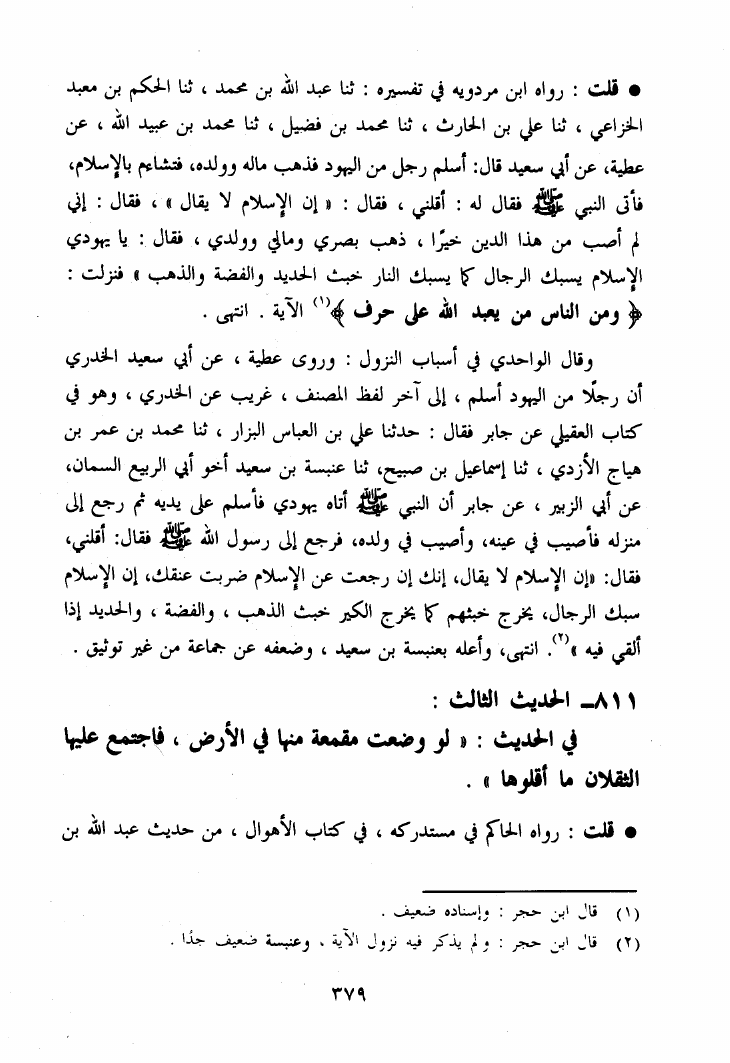 ● قلت : رواه ابن مردويه في تفسيره : ثنا عبد الله بن محمد ، ثنا الحكم بن معبد
الخزاعي ، ثنا علي بن الحارث ، ثنا محمد بن فضيل ، ثنا محمد بن عبيد الله ، عن
عطية، عن أبي سعيد قال: أسلم رجل من اليهود فذهب ماله وولده، فتشاءم بالإسلام،
فأتى النبي ﷺ فقال له : أقلني ، فقال : « إن الإسلام لا يقال » ، فقال : إني
لم أصب من هذا الدين خيرًا ، ذهب بصري ومالي وولدي ، فقال : يا يهودي
الإسلام يسبك الرجال كما يسبك النار خبث الحديد والفضة والذهب » فنزلت :
﴿ ومن الناس من يعبد الله على حرف ﴾(١) الآية . انتهى .
وقال الواحدي في أسباب النزول : وروى عطية ، عن أبي سعيد الخدري
أن رجلًا من اليهود أسلم ، إلى آخر لفظ المصنف ، غريب عن الخدري ، وهو في
كتاب العقيلي عن جابر فقال : حدثنا علي بن العباس البزار ، ثنا محمد بن عمر بن
هياج الأزدي ، ثنا إسماعيل بن صبيح، ثنا عنبسة بن سعيد أخو أبي الربيع السمان،
عن أبي الزبير ، عن جابر أن النبي ﷺ أتاه يهودي فأسلم على يديه ثم رجع إلى
منزله فأصيب في عينه، وأصيب في ولده، فرجع إلى رسول الله ﷺ فقال: أقلني،
فقال: «إن الإسلام لا يقال، إنك إن رجعت عن الإسلام ضربت عنقك، إن الإسلام
سبك الرجال، يخرج خبثهم كما يخرج الكير خبث الذهب ، والفضة ، والحديد إذا
ألقي فيه »(٢). انتهى، وأعله بعنبسة بن سعيد ، وضعفه عن جماعة من غير توثيق .
٨١١ـ الحديث الثالث :
في الحديث : « لو وضعت مقمعة منها في الأرض ، فاجتمع عليها
الثقلان ما أقلوها » .
● قلت : رواه الحاكم في مستدركه ، في كتاب الأهوال ، من حديث عبد الله بن
(١) قال ابن حجر : وإسناده ضعيف .
(٢) قال ابن حجر : ولم يذكر فيه نزول الآية ، وعنبسة ضعيف جدًا .
٣٧٩